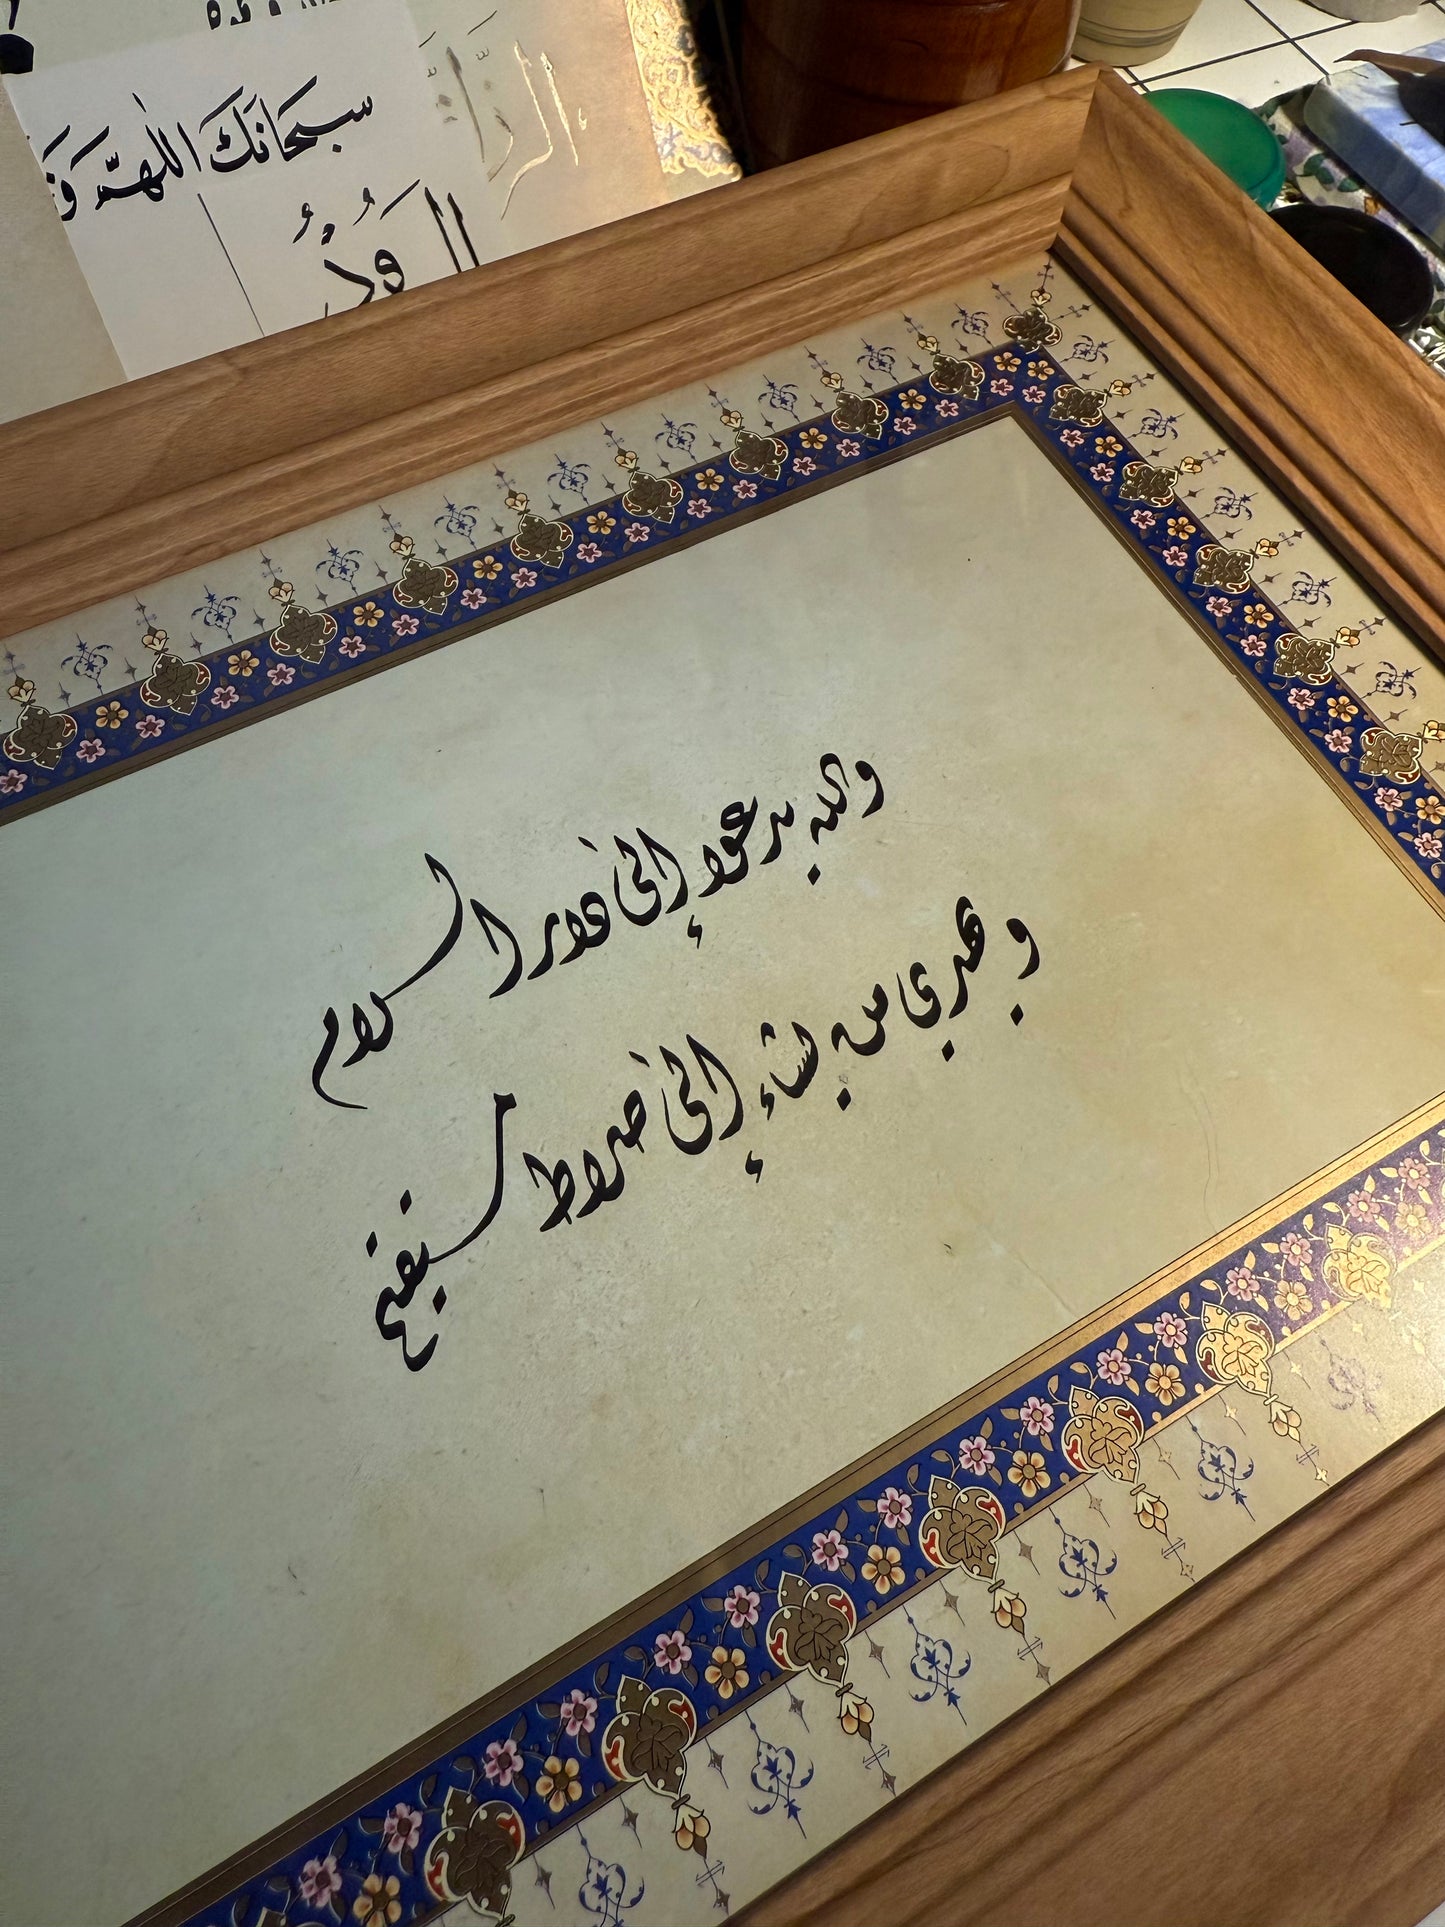 سبحانك اللهم
والله يدعوا إلى دار السلام
ويهدي من يشاء إلى صراط مستقيم